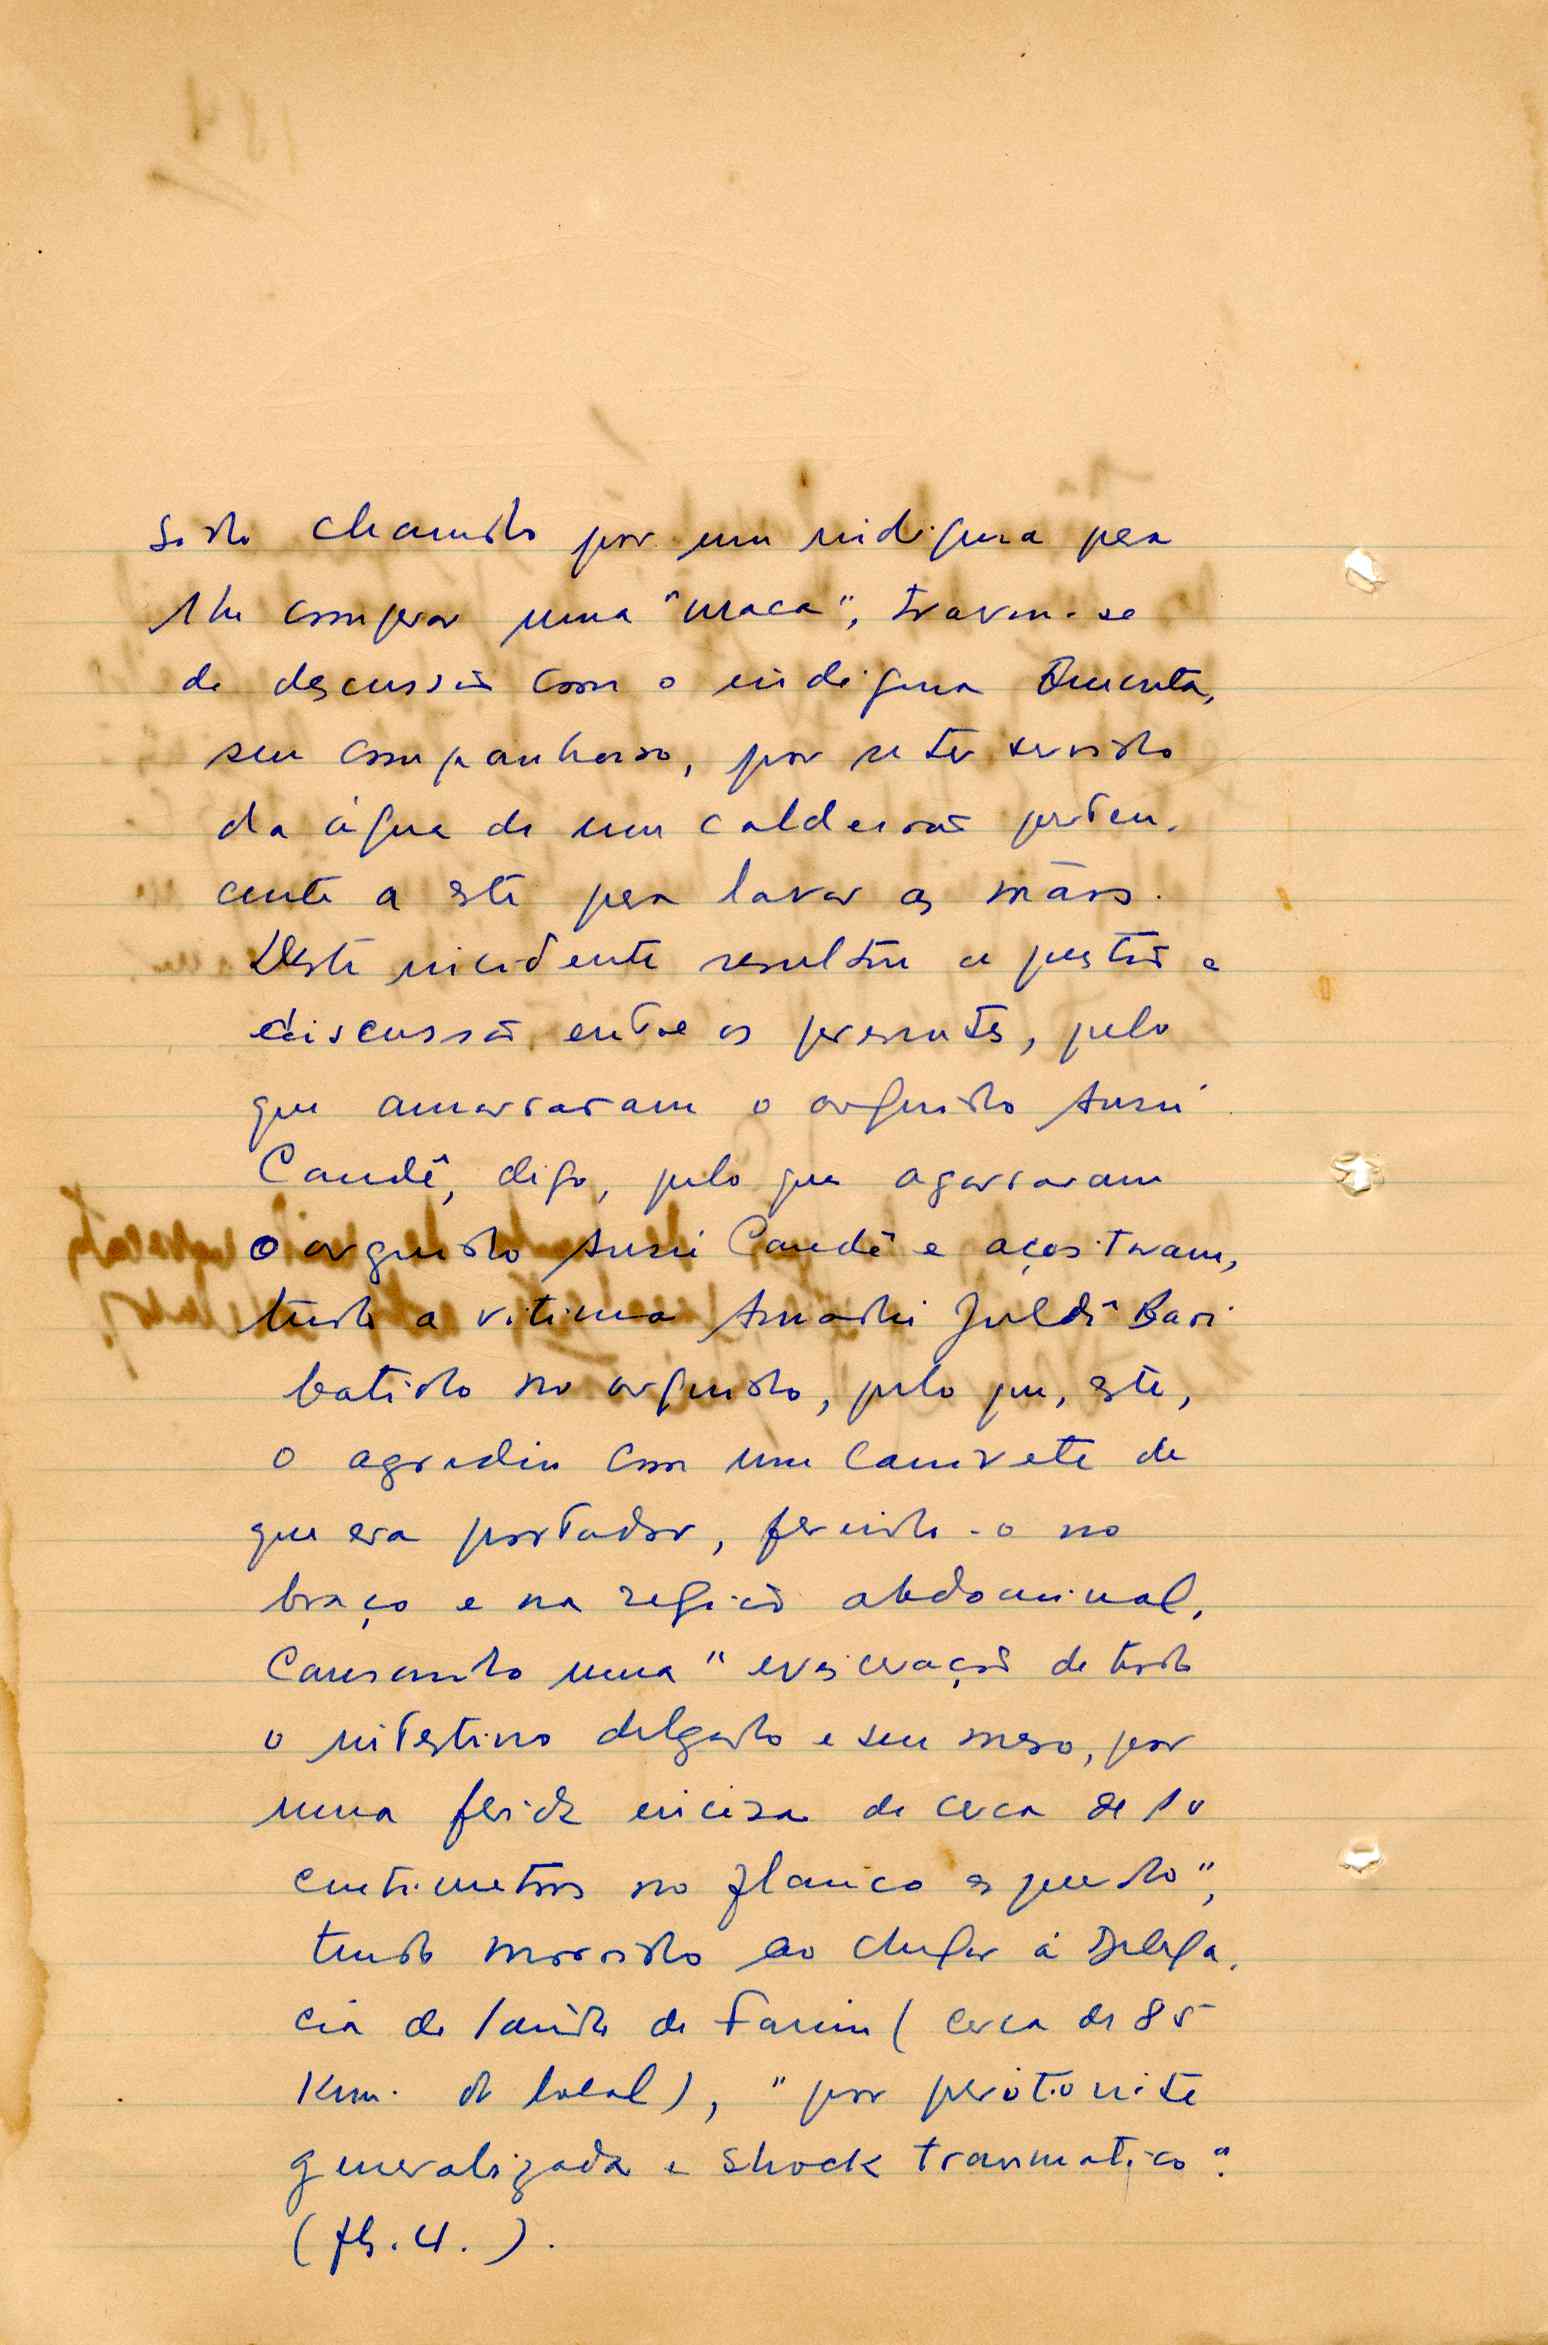 sido chamado por um indigena para
lhe comprar uma "maca", travou-se
de descussão com o indigena
seu companheiro, por se ter servido
da água de um caldeirão perten-
cente a este para lavar as mãos.
Deste incidente resultou a questão e
discussão entre os presentes, pelo
que amarraram o arguido
Candê, digo, pelo que agarraram
o arguido Candê e açoitaram,
tendo a vitima Amadú Juldê Bari
batido no arguido, pelo que, este,
o agrediu com um canivete de
que era portador, ferindo-o no
braço e na região abdominal,
causando uma "evisceração de todo
o intestino delgado e seu meso, por
uma ferida incisa de cerca de 10
centimetros no flanco esquerdo",
tendo morrido ao chegar à Delega-
cia de Saúde de Farim (cerca de 85
Km. do local), "por peritonite
generalizada e shock traumatico".
(fls. 4.).